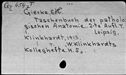 Gierke E.
Taschenbuch der patholo
gischen Anatomie. 2te Aufl. T.
Leipzig.
Klinkhardt, 1913.
T. W. Klinkhardts
Kolleghefte H.